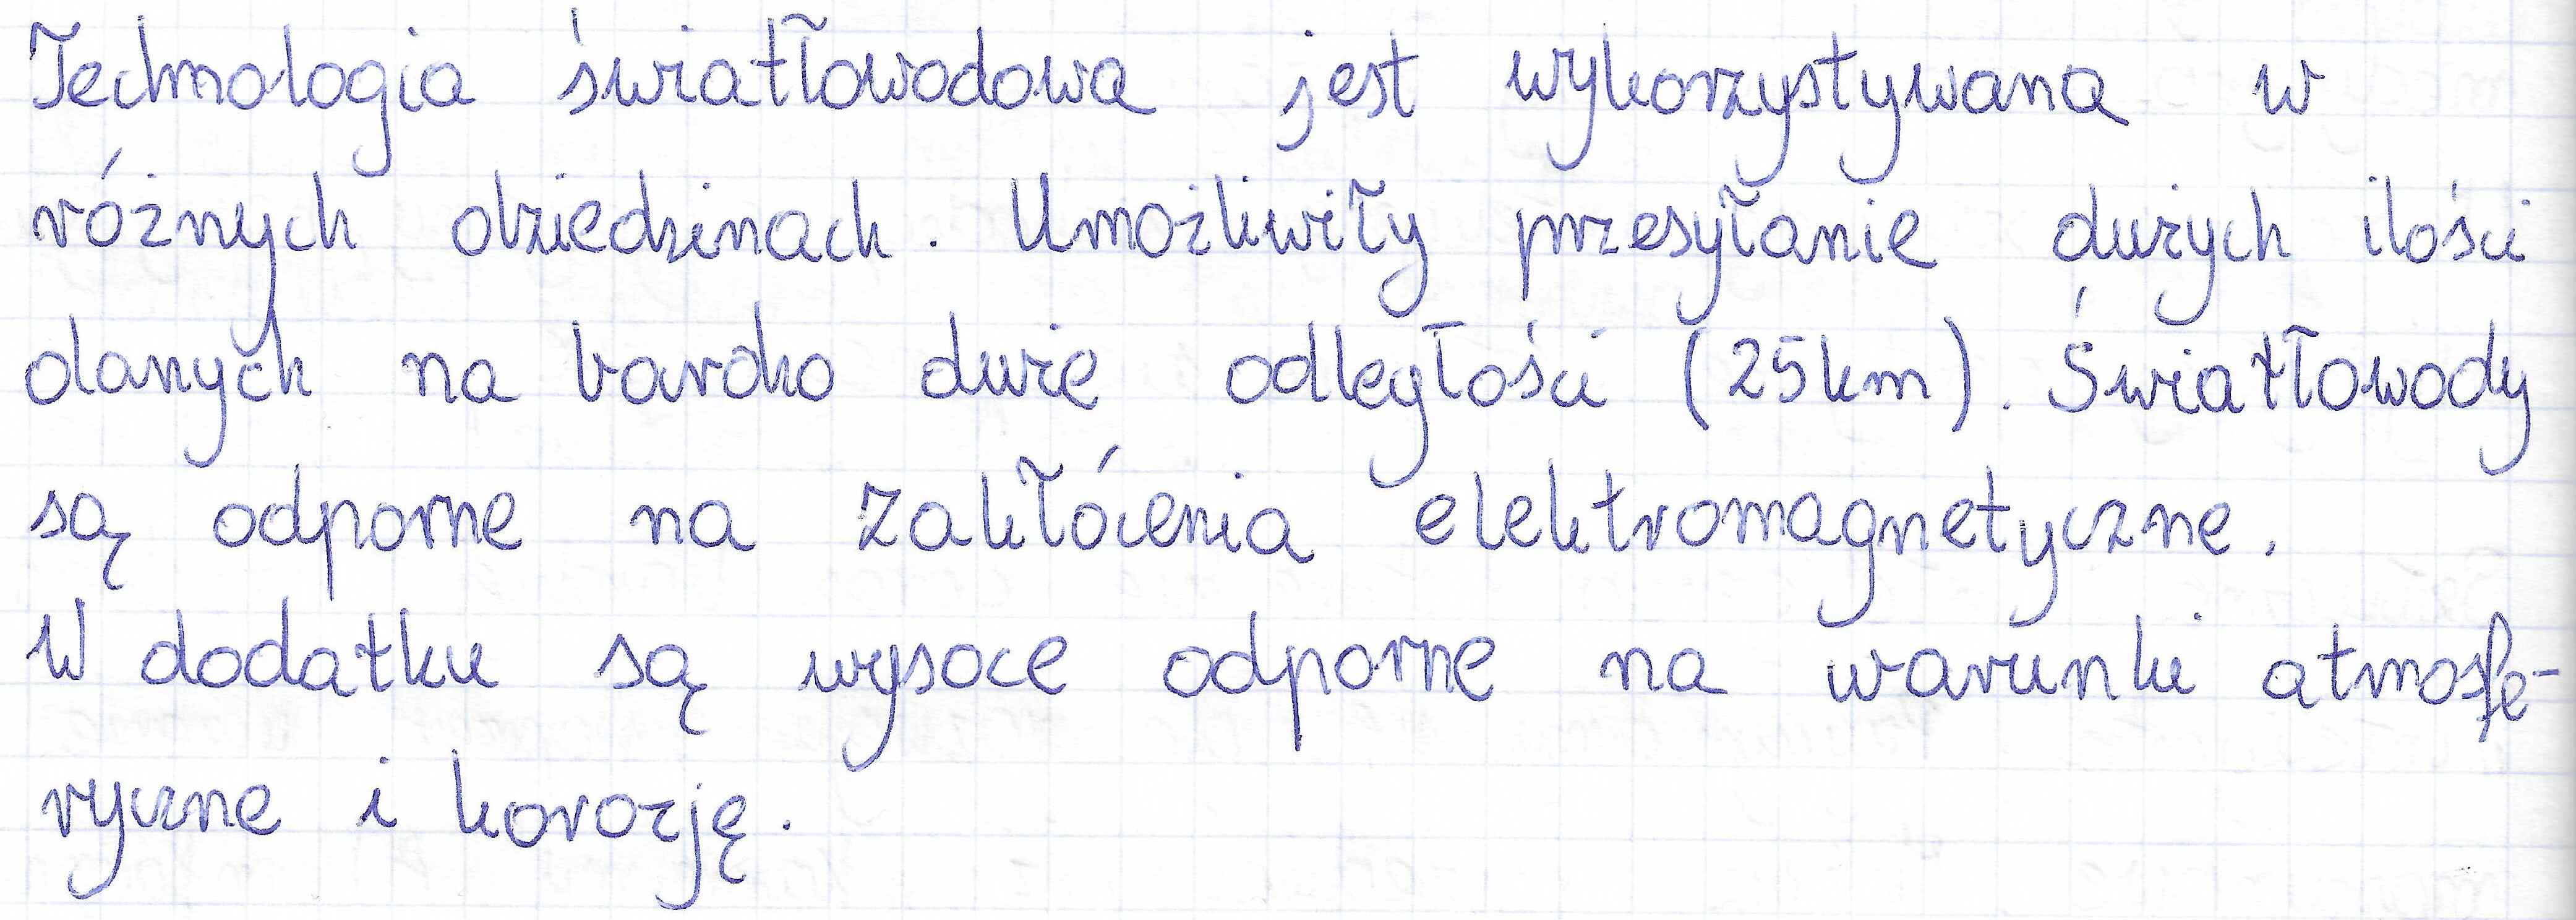 Technologia światłowodowa jest wykorzystywana w
różnych dziedzinach. Umożliwiły przesyłanie dużych ilości
danych na bardzo duże odległości (25km). Światłowody
są odporne na zakłócenia elektromagnetyczne.
W dodatku są wysoce odporne na warunki atmosfe-
ryczne i korozję.